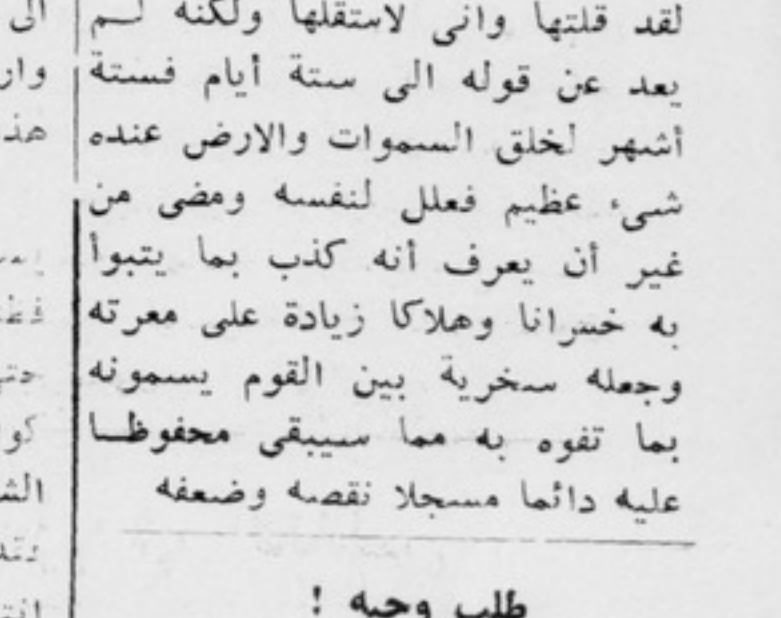 لقد قلتها وانى لاستقلها ولكنه لم
يعد عن قوله الى ستة أيام فستة
أشهر لخلق السموات والارض عنده
شىء عظيم فعلل لنفسه ومضى من
غير أن يعرف أنه كذب بما يتبوأ
به خسرانا وهلاكا زيادة على معرته
وجعله سخرية بين القوم يسمونه
بما تفوه به مما سيبقى محفوظا
عليه دائما مسجلا نقصه وضعفه
طلب وجيه !
الى